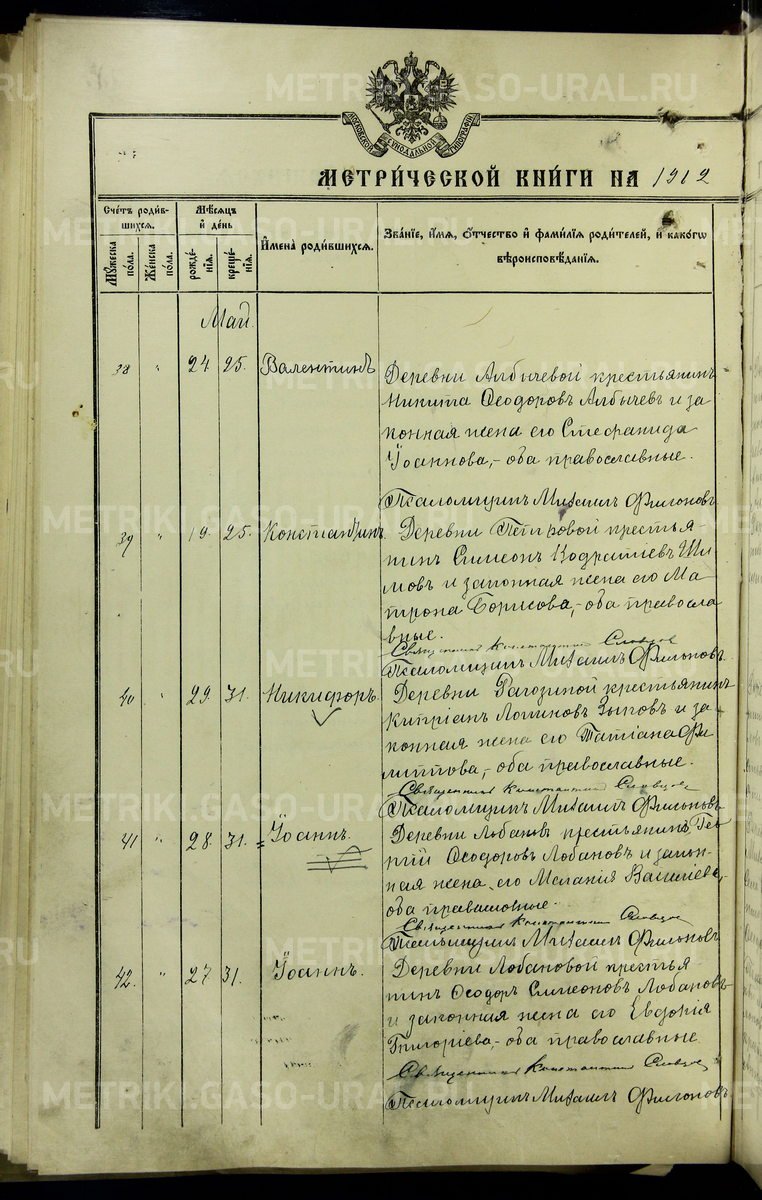 METRIK.GASO-URAL.RU
МОСКОВСКОЙ СѴНОДАЛЬНОЙ ТИПОГРАФІИ
МЕТРИ́ЧЕСКОЙ КНИ́ГИ НА 1912
Сче́тъ роди́в-
шихся.
Мѣ́сяцъ
и҆ де́нь
И҆мена̀ роди́вшихся.
Зва́нїе, и҆́мя, ѻ҆́тчество и҆ фами́лїя роди́телей, и҆ како́гѡ
вѣроисповѣ́данїя.
Мꙋ́жеска
по́ла.
Же́нска
по́ла.
рожде́-
нїя.
креще́-
нїя.
Май.
38 " 24 25. Валентинъ
Деревни Албычевой крестьянинъ
Никита Ѳеодоровъ Албычевъ и за
конная жена его Стефанида
Іоаннова,- оба православные.
Псаломщикъ Михаилъ Филоновъ
39 " 19. 25. Константинъ.
Деревни крестья-
нинъ Симеонъ Кодратіевъ Ши
ловъ и законная жена его Ма
трона Борисова,- оба правосла
вные.
Священникъ Константинъ Словцов
Псаломщикъ Михаилъ Филоновъ
40 " 29 31. Никифоръ.
Деревни Рагозиной крестьянинъ
Кипріанъ Логиновъ Зыковъ и за
конная жена его Татіана Фи
липпова,- оба православные.
Священникъ Константинъ Словцов
Псаломщикъ Михаилъ Филоновъ
41 " 28. 31. Іоаннъ.
Деревни Лобановой крестьянинъ Гео
ргій Ѳеодоровъ Лобановъ и закон-
ная жена его Меланія Василіева,
оба православные.
Священникъ Константинъ Словцов
Псаломщикъ Михаилъ Филоновъ
42. " 27 31. Іоаннъ.
Деревни Лобановой крестья-
нинъ Ѳеодоръ Симеоновъ Лобановъ
и законная жена его Евдокія
Григоріева,- оба православные
Священникъ Константинъ Словцов
Псаломщикъ Михаилъ Филоновъ